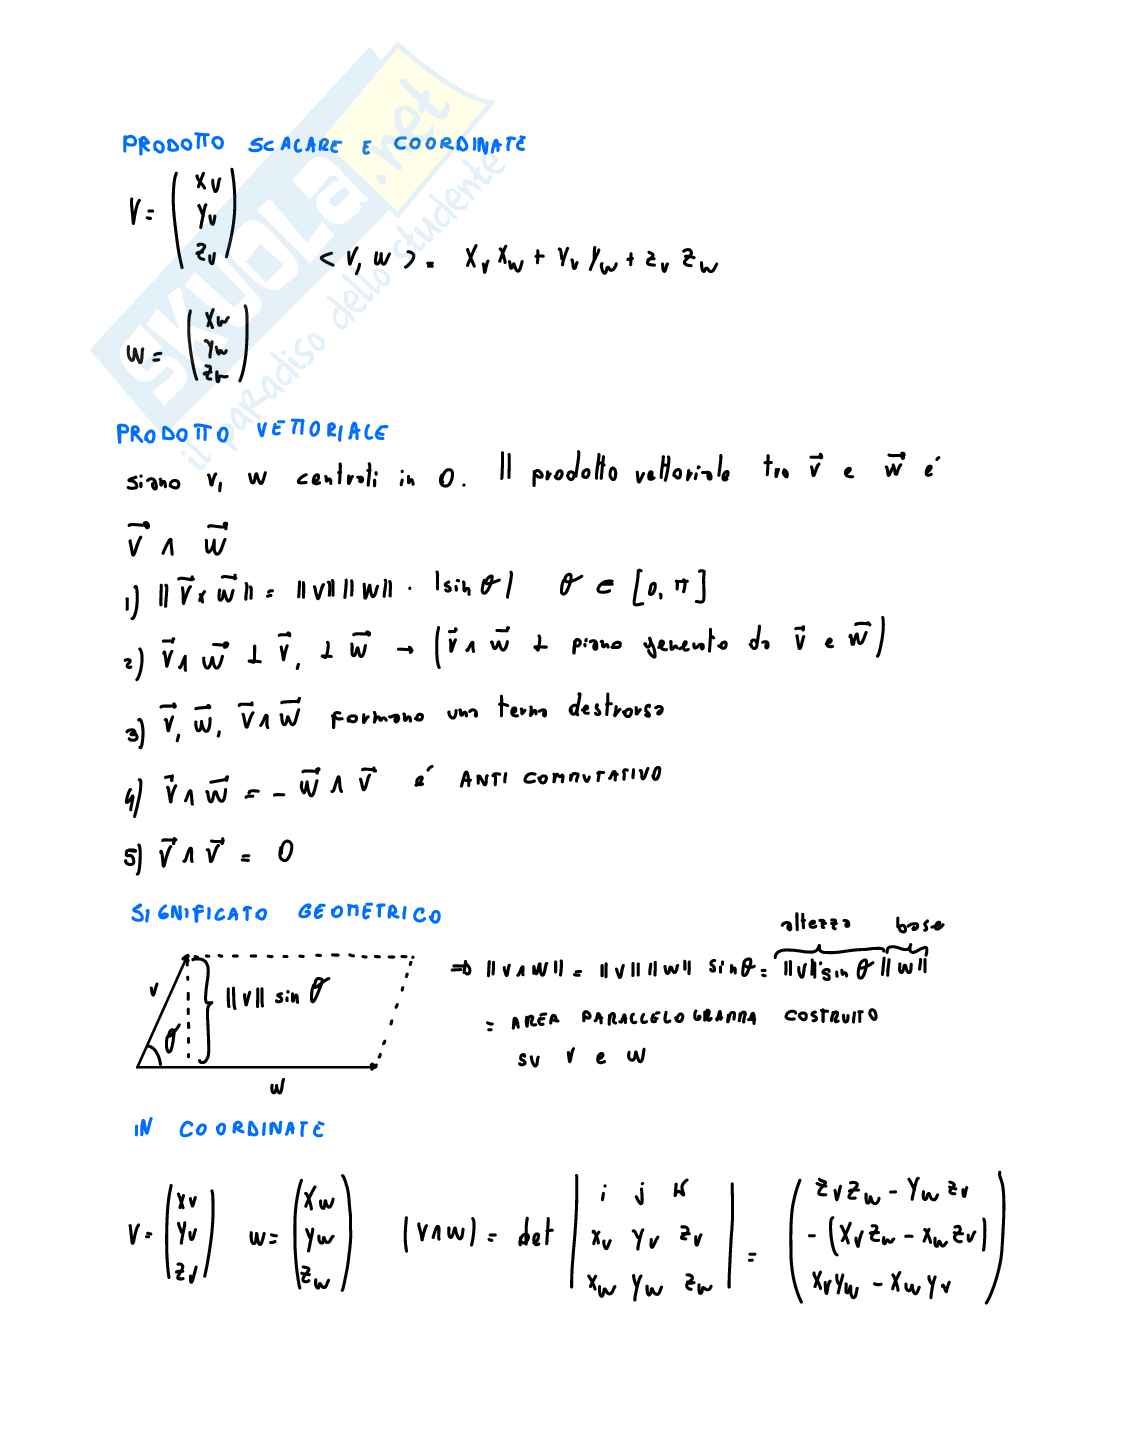 SKUOLA.net
il paradiso dello studente
PRODOTTO SCALARE E COORDINATE
V = ( x_v y_v z_v )
< v, w > = x_v x_w + y_v y_w + z_v z_w
w = ( x_w y_w z_w )
PRODOTTO VETTORIALE
siano v, w centrati in O. Il prodotto vettoriale tra v⃗ e w⃗ é
v⃗ ∧ w⃗
1) ||v⃗ x w⃗|| = ||v|| ||w|| · |sin θ| θ ∈ [0, π]
2) v⃗ ∧ w⃗ ⊥ v⃗, ⊥ w⃗ → (v⃗ ∧ w⃗ ⊥ piano generato da v⃗ e w⃗)
3) v⃗, w⃗, v⃗ ∧ w⃗ formano una terna destrorsa
4) v⃗ ∧ w⃗ = - w⃗ ∧ v⃗ é ANTI COMMUTATIVO
5) v⃗ ∧ v⃗ = 0
SIGNIFICATO GEOMETRICO
altezza base
v θ ||v|| sin θ w
⇒ ||v ∧ w|| = ||v|| ||w|| sin θ = ||v|| · sin θ ||w||
= AREA PARALLELOGRAMMA COSTRUITO
SU v e w
IN COORDINATE
V = ( x_v y_v z_v ) w = ( x_w y_w z_w ) (v ∧ w) = det | i j k | = ( z_v z_w - y_w z_v )
| x_v y_v z_v | ( - (x_v z_w - x_w z_v) )
| x_w y_w z_w | ( x_v y_w - x_w y_v )